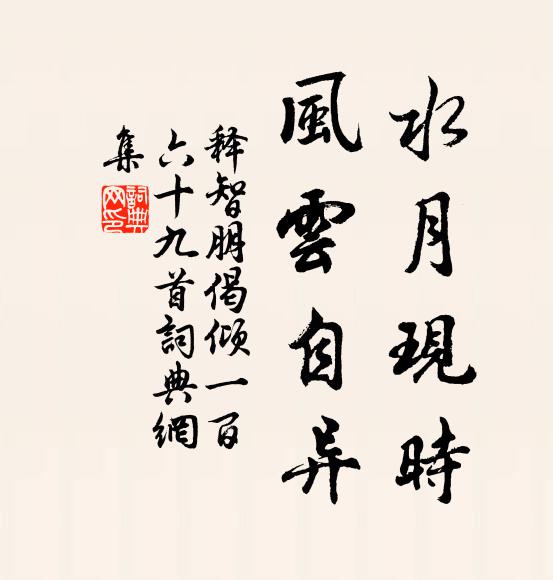 水月現時
風雲自异
释智朋偈倾一百
六十九首詞典網
集
詞典
网印